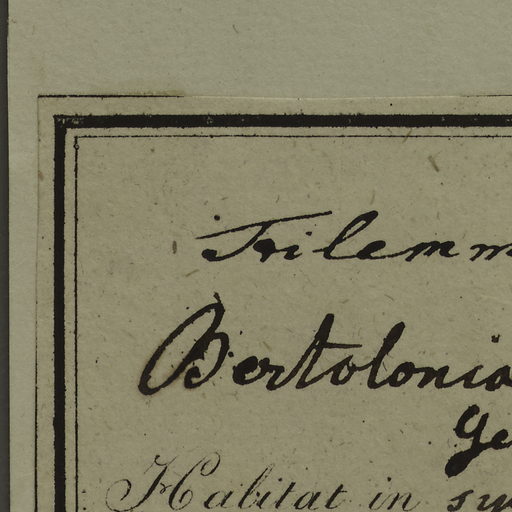 Trilemm
Bertolonia
Ge
Habitat in sy